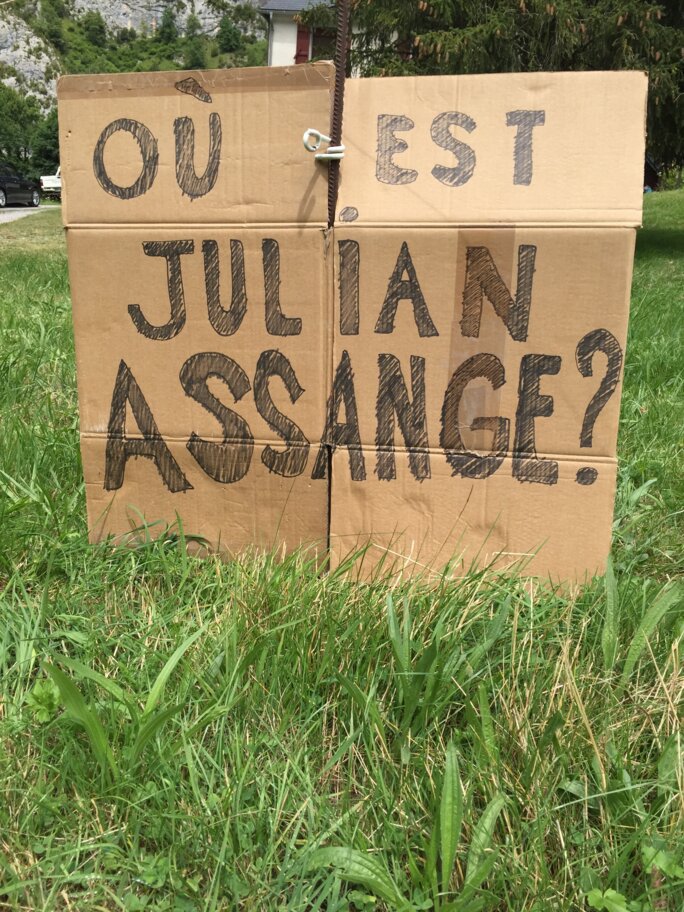 OÙ EST
JULIAN
ASSANGE?